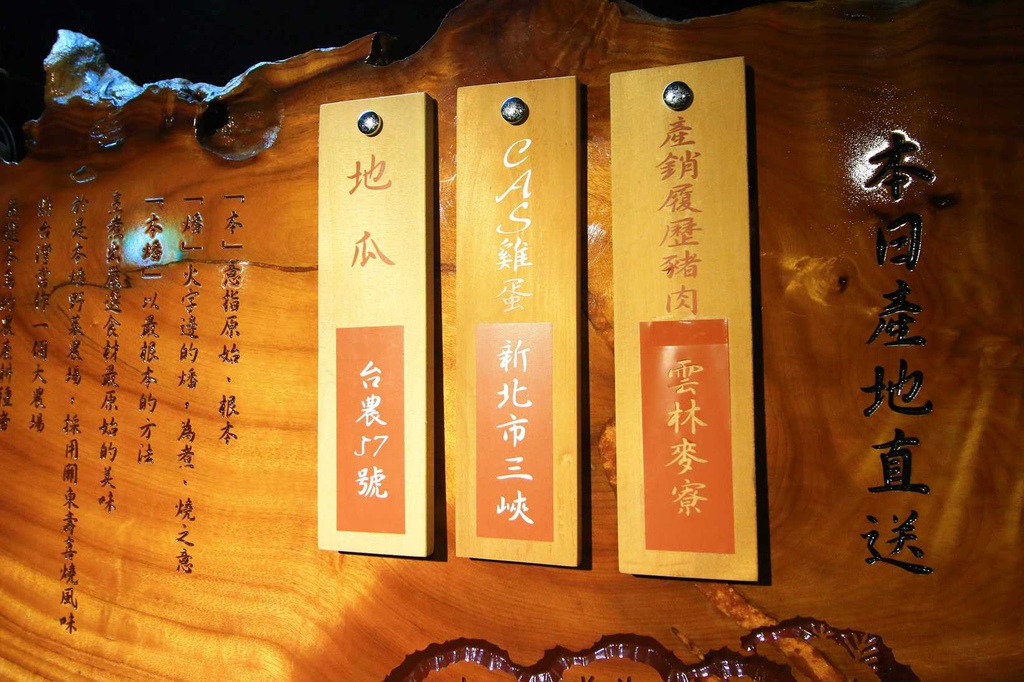 本日產地直送
產銷履歷豬肉
雲林麥寮
CAS雞蛋
新北市三峽
地瓜
台農57號
「本」意指原始、根本
「燔」火字邊的燔，為煮、燒之意
「本燔」以最根本的方法
烹煮出最適食材最原始的美味
於是本燔野菜農場，採用關東壽喜燒風味
一個大農場